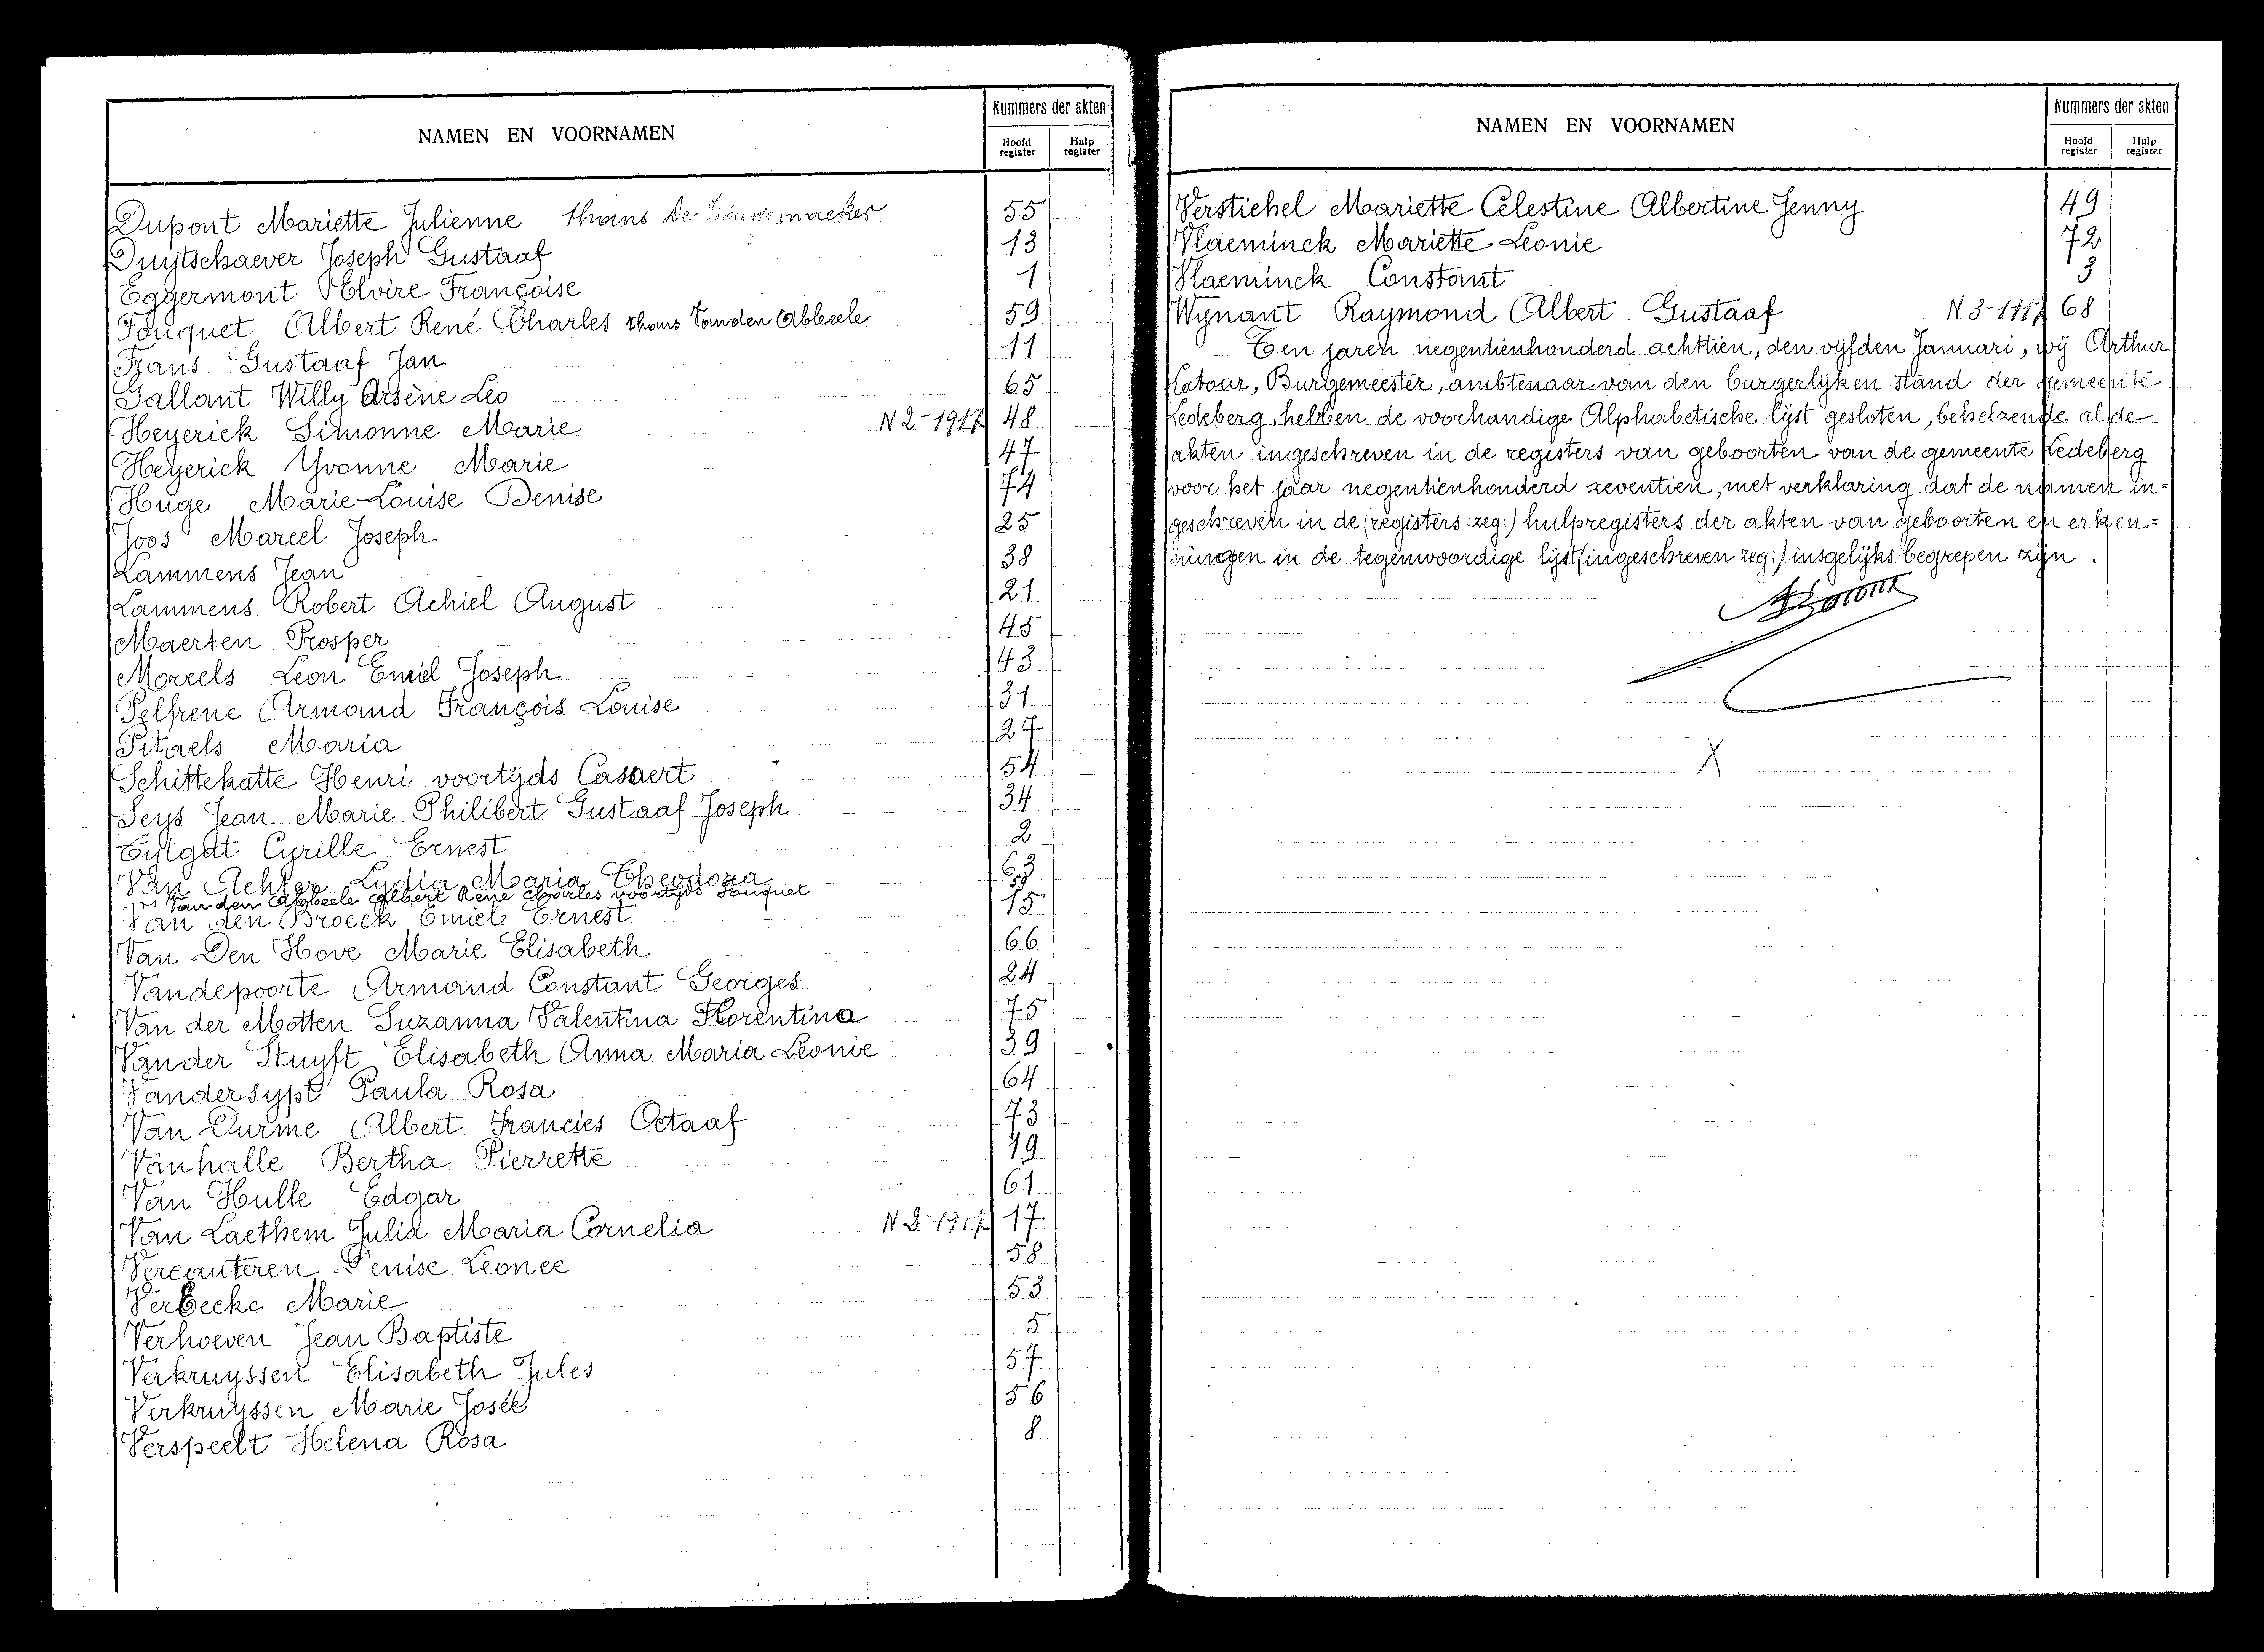 NAMEN EN VOORNAMEN
Nummers der akten
Hoofd register
Hulp register
Dupont Mariette Julienne thans De 55
Duytschaever Joseph Gustaaf 13
Eggermont Elvire Françoise 1
Fouquet Albert René Charles thans Vanden Abbeele 59
Frans. Gustaaf Jan 11
Gallant Willy Arsène Léo 65
Heyerick Simonne Marie N 2-1917 48
Heyerick Yvonne Marie 47
Huge Marie-Louise Denise 74
Joos Marcel Joseph 25
Lammens Jean 38
Lammens Robert Achiel August 21
Maerten Prosper 45
Morcels Léon Emiel Joseph 43
Pelfrene Armand François Louise 31
Pitaels Maria 27
Schittekatte Henri voortijds Casaert 54
Seys Jean Marie Philibert Gustaaf Joseph 34
Tytgat Cyrille Ernest 2
Van Achter Lydia Maria Theodora 63
Van den Abbeele Albert René Charles voortijds Fouquet 59
Van den Broeck Emiel Ernest 15
Van Den Hove Marie Elisabeth 66
Vandepoorte Armand Constant Georges 24
Van der Motten Suzanna Valentina Florentina 75
Vander Stuyft Elisabeth Anna Maria Léonie 39
Vandersypt Paula Rosa 64
Van Durme Albert Francies Octaaf 73
Vanhalle Bertha Pierrette 19
Van Hulle Edgar 61
Van Laethem Julia Maria Cornelia N 2-1917 17
Vercauteren Denise Léonce 58
Verbecke Marie 53
Verhoeven Jean Baptiste 5
Verkruyssen Elisabeth Jules 57
Verkruyssen Marie Josée 56
Verspeelt Helena Rosa 8
NAMEN EN VOORNAMEN
Nummers der akten
Hoofd register
Hulp register
Verstichel Mariette Célestine Albertine Jenny 49
Vlaeminck Mariette Leonie 72
Vlaeminck Constant 3
Wynant Raymond Albert Gustaaf N 3-1917 68
Ten jaren negentienhonderd achttien, den vijfden Januari, wij Arthur
Latour, Burgemeester, ambtenaar van den burgerlijken stand der gemeente
Ledeberg, hebben de voorhandige Alphabetische lijst gesloten, behelzende al de
akten ingeschreven in de registers van geboorten van de gemeente Ledeberg
voor het jaar negentienhonderd zeventien, met verklaring dat de namen in=
geschreven in de (registers: zeg:) hulpregisters der akten van geboorten en erken=
ningen in de tegenwoordige lijst (ingeschreven zeg:) insgelijks begrepen zijn.
ALatour
X